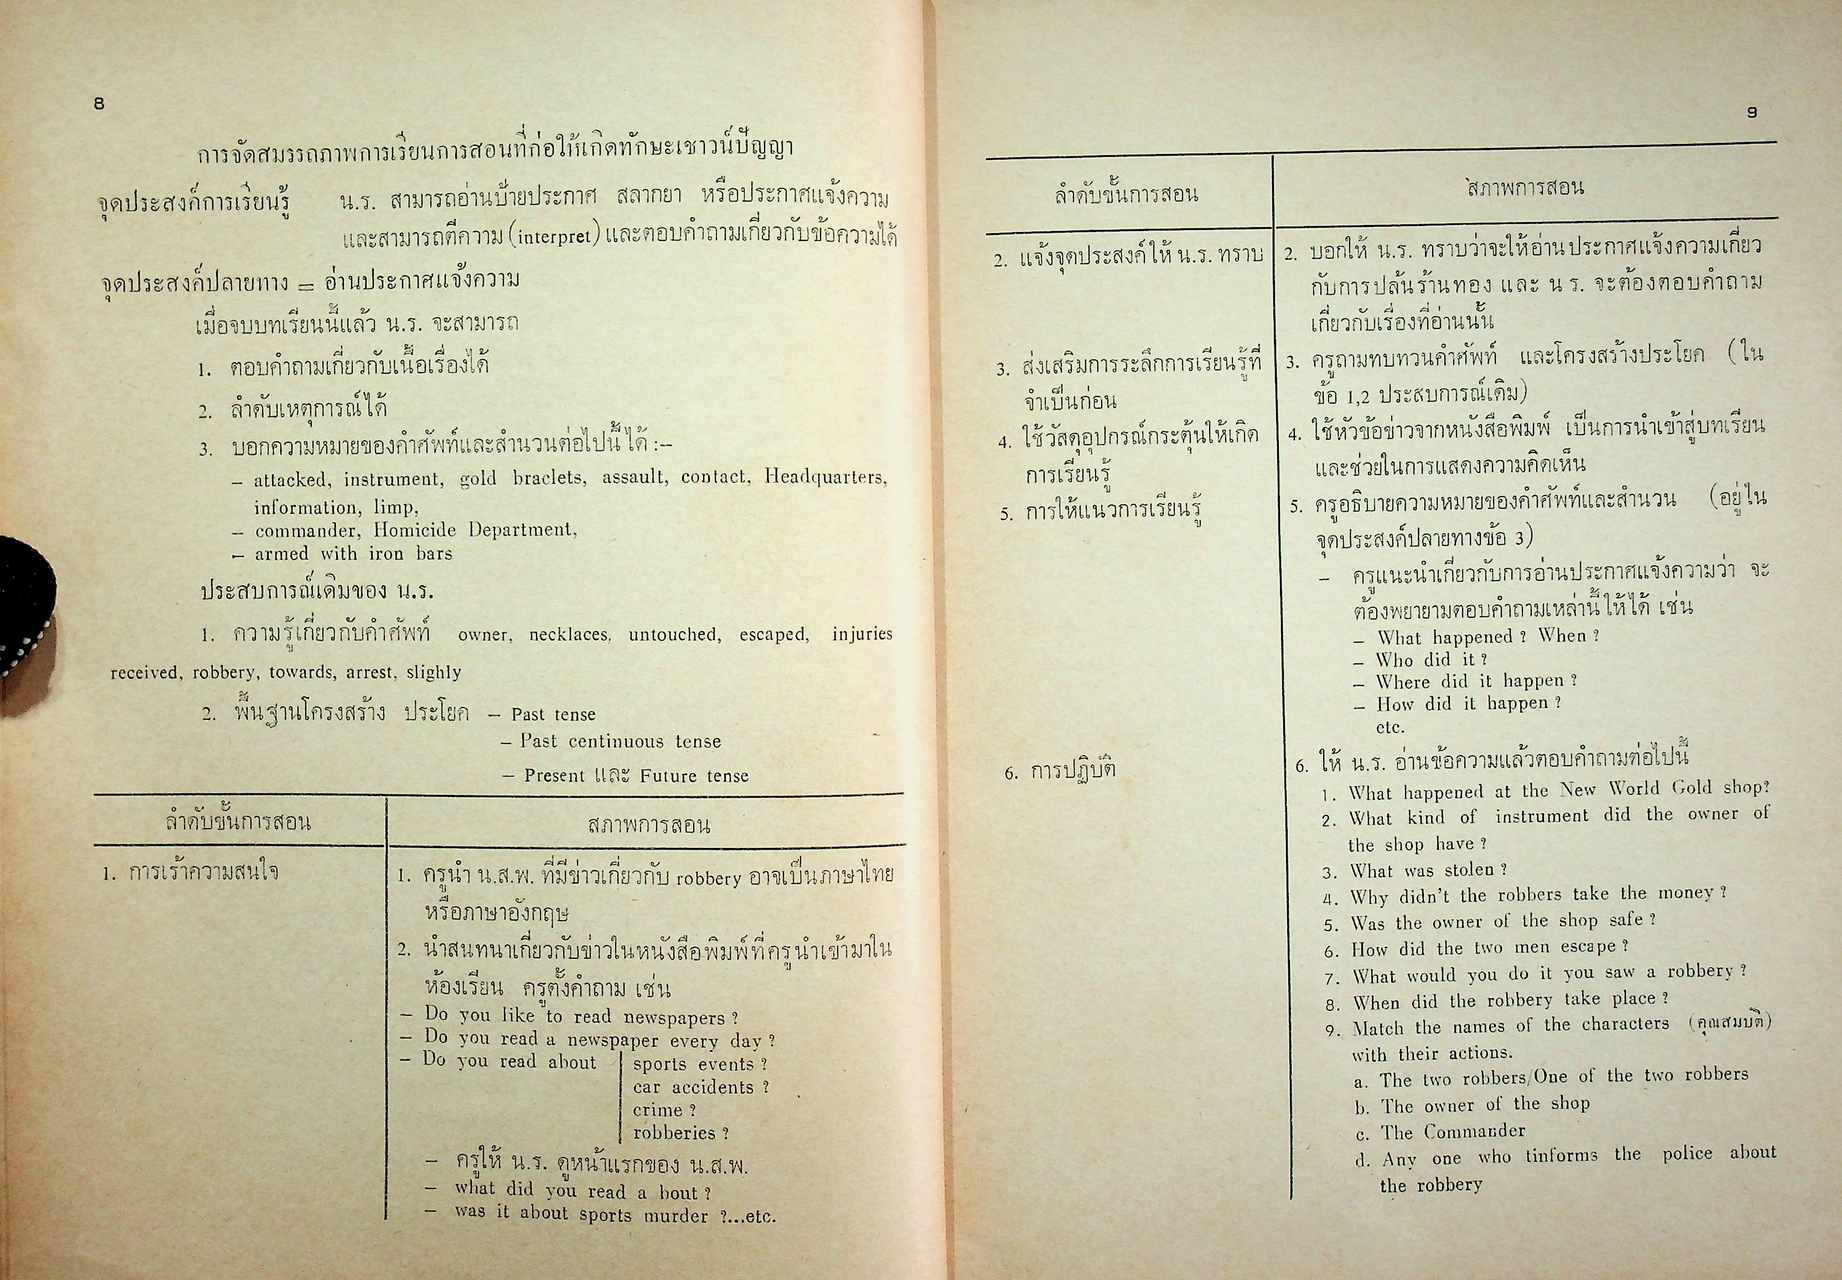 8
การจัดสมรรถภาพการเรียนการสอนที่ก่อให้เกิดทักษะเชาวน์ปัญญา
จุดประสงค์การเรียนรู้ น.ร. สามารถอ่านป้ายประกาศ สลากยา หรือประกาศแจ้งความ
และสามารถตีความ (interpret) และตอบคำถามเกี่ยวกับข้อความได้
จุดประสงค์ปลายทาง = อ่านประกาศแจ้งความ
เมื่อจบบทเรียนนี้แล้ว น.ร. จะสามารถ
1. ตอบคำถามเกี่ยวกับเนื้อเรื่องได้
2. ลำดับเหตุการณ์ได้
3. บอกความหมายของคำศัพท์และสำนวนต่อไปนี้ได้ :–
– attacked, instrument, gold braclets, assault, contact, Headquarters,
information, limp,
– commander, Homicide Department,
– armed with iron bars
ประสบการณ์เดิมของ น.ร.
1. ความรู้เกี่ยวกับคำศัพท์ owner, necklaces, untouched, escaped, injuries
received, robbery, towards, arrest, slighly
2. พื้นฐานโครงสร้าง ประโยค – Past tense
– Past centinuous tense
– Present และ Future tense
ลำดับขั้นการสอน สภาพการสอน
1. การเร้าความสนใจ 1. ครูนำ น.ส.พ. ที่มีข่าวเกี่ยวกับ robbery อาจเป็นภาษาไทย
หรือภาษาอังกฤษ
2. นำสนทนาเกี่ยวกับข่าวในหนังสือพิมพ์ที่ครูนำเข้ามาใน
ห้องเรียน ครูตั้งคำถาม เช่น
– Do you like to read newspapers ?
– Do you read a newspaper every day ?
– Do you read about sports events ?
car accidents ?
crime ?
robberies ?
– ครูให้ น.ร. ดูหน้าแรกของ น.ส.พ.
– what did you read a bout ?
– was it about sports murder ?...etc.
9
ลำดับขั้นการสอน สภาพการสอน
2. แจ้งจุดประสงค์ให้ น.ร. ทราบ 2. บอกให้ น.ร. ทราบว่าจะให้อ่านประกาศแจ้งความเกี่ยว
กับการปล้นร้านทอง และ น ร. จะต้องตอบคำถาม
เกี่ยวกับเรื่องที่อ่านนั้น
3. ส่งเสริมการระลึกการเรียนรู้ที่ 3. ครูถามทบทวนคำศัพท์ และโครงสร้างประโยค (ใน
จำเป็นก่อน ข้อ 1,2 ประสบการณ์เดิม)
4. ใช้วัสดุอุปกรณ์กระตุ้นให้เกิด 4. ใช้หัวข้อข่าวจากหนังสือพิมพ์ เป็นการนำเข้าสู่บทเรียน
การเรียนรู้ และช่วยในการแสดงความคิดเห็น
5. การให้แนวการเรียนรู้ 5. ครูอธิบายความหมายของคำศัพท์และสำนวน (อยู่ใน
จุดประสงค์ปลายทางข้อ 3)
– ครูแนะนำเกี่ยวกับการอ่านประกาศแจ้งความว่า จะ
ต้องพยายามตอบคำถามเหล่านี้ให้ได้ เช่น
– What happened ? When ?
– Who did it ?
– Where did it happen ?
– How did it happen ?
etc.
6. การปฏิบัติ 6. ให้ น.ร. อ่านข้อความแล้วตอบคำถามต่อไปนี้
1. What happened at the New World Gold shop?
2. What kind of instrument did the owner of
the shop have ?
3. What was stolen ?
4. Why didn't the robbers take the money ?
5. Was the owner of the shop safe ?
6. How did the two men escape ?
7. What would you do it you saw a robbery ?
8. When did the robbery take place ?
9. Match the names of the characters (คุณสมบัติ)
with their actions.
a. The two robbers/One of the two robbers
b. The owner of the shop
c. The Commander
d. Any one who tinforms the police about
the robbery